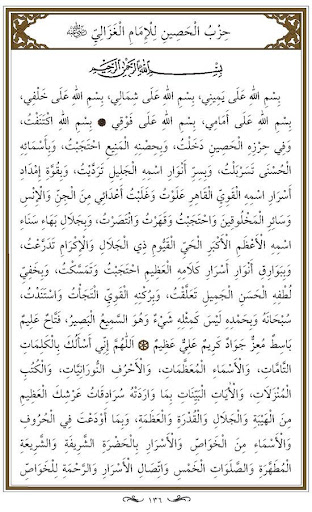 حِزْبُ الْحَصِينِ لِلْإِمَامِ الْغَزَالِيِّ
بِسْمِ اللهِ الرَّحْمٰنِ الرَّحِيمِ
بِسْمِ اللهِ عَلَى يَمِينِي، بِسْمِ اللهِ عَلَى شِمَالِي، بِسْمِ اللهِ عَلَى خَلْفِي،
بِسْمِ اللهِ عَلَى أَمَامِي، بِسْمِ اللهِ عَلَى فَوْقِي ۞ بِسْمِ اللهِ اكْتَنَفْتُ،
وَفِي حِرْزِهِ الْحَصِينِ دَخَلْتُ، وَبِحِصْنِهِ الْمَنِيعِ احْتَجَبْتُ، وَبِأَسْمَائِهِ
الْحُسْنَى تَسَرْبَلْتُ، وَبِسِرِّ أَنْوَارِ اسْمِهِ الْجَلِيلِ تَرَدَّيْتُ، وَبِقُوَّةِ إِمْدَادِ
أَسْرَارِ اسْمِهِ الْقَوِيِّ الْقَاهِرِ عَلَوْتُ وَغَلَبْتُ أَعْدَائِي مِنَ الْجِنِّ وَالْإِنْسِ
وَسَائِرِ الْمَخْلُوقِينَ وَاحْتَجَبْتُ وَقَهَرْتُ وَانْتَصَرْتُ، وَبِجَلَالِ بَهَاءِ سَنَاءِ
اسْمِهِ الْأَعْظَمِ الْأَكْبَرِ الْحَيِّ الْقَيُّومِ ذِي الْجَلَالِ وَالْإِكْرَامِ تَدَرَّعْتُ،
وَبِبَوَارِقِ أَنْوَارِ أَسْرَارِ كَلَامِهِ الْعَظِيمِ احْتَجَبْتُ وَتَمَسَّكْتُ، وَبِخَفِيِّ
لُطْفِهِ الْحَسَنِ الْجَمِيلِ تَعَلَّقْتُ، وَبِرُكْنِهِ الْقَوِيِّ الْتَجَأْتُ وَاسْتَنَدْتُ،
سُبْحَانَهُ وَبِحَمْدِهِ لَيْسَ كَمِثْلِهِ شَيْءٌ وَهُوَ السَّمِيعُ الْبَصِيرُ، فَتَّاحٌ عَلِيمٌ
بَاسِطٌ مُعِزٌّ جَوَادٌ كَرِيمٌ عَلِيٌّ عَظِيمٌ ۞ اللّٰهُمَّ إِنِّي أَسْأَلُكَ بِالْكَلِمَاتِ
التَّامَّاتِ، وَالْأَسْمَاءِ الْمُعَظَّمَاتِ، وَالْأَحْرُفِ النُّورَانِيَّاتِ، وَالْكُتُبِ
الْمُنْزَلَاتِ، وَالْآيَاتِ الْبَيِّنَاتِ بِمَا وَارَدَتْهُ سُرَادِقَاتُ عَرْشِكَ الْعَظِيمِ
مِنَ الْهَيْبَةِ وَالْجَلَالِ وَالْقُدْرَةِ وَالْعَظَمَةِ، وَبِمَا أَوْدَعْتَ فِي الْحُرُوفِ
وَالْأَسْمَاءِ مِنَ الْخَوَاصِّ وَالْأَسْرَارِ بِالْحَضْرَةِ الشَّرِيفَةِ وَالشَّرِيعَةِ
الْمُطَهَّرَةِ وَالصَّلَوَاتِ الْخَمْسِ وَاتِّصَالِ الْأَسْرَارِ وَالرَّحْمَةِ لِلْخَوَاصِّ
١٣٦